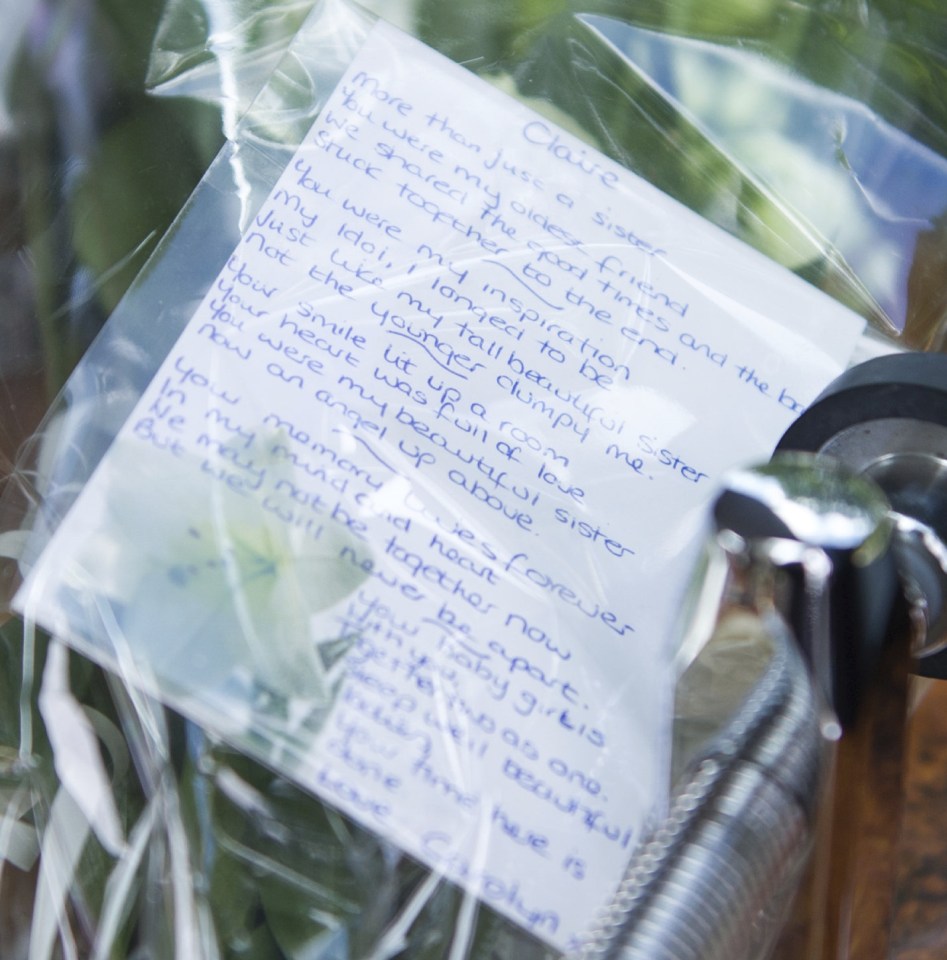 Claire
More than just a sister
You were my oldest friend
We shared the good times and the
Stuck together to the end.
You were my inspiration
My Idol, I longed to be
Just like my tall beautiful sister
Not the younger dumpy me.
Your smile lit up a room
Your heart was full of love
You were my beautiful sister
Now an angel up above.
Your memory lives forever
In my mind and heart
We may not be together now
But we will never be apart.
Your baby girl is
with you
together as one.
Sleep well beautiful
lady
your time here is
done
Love Carolyn x